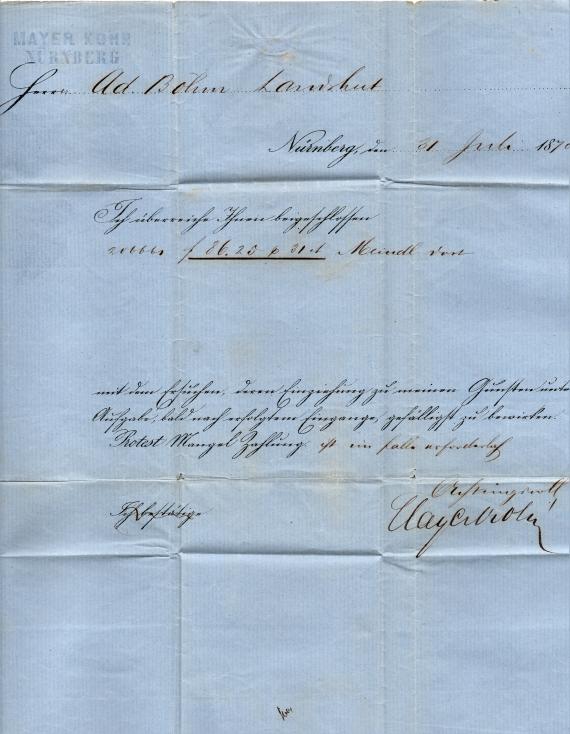 MAYER KOHN
NÜRNBERG
Herrn Ad. Böhm Landshut
Nürnberg, den 31 Juli 187
Ich überreiche Ihnen beigeschlossen
f 86.25 p 31 Meindl dort
mit dem Ersuchen, deren Einziehung zu meinen Gunsten unter
Aufgabe, bald nach erfolgtem Eingange, gefälligst zu bewirken.
Protest Mangel Zahlung ist im Falle erforderlich
Achtungsvoll
Ich bestätige
Mayer Kohn